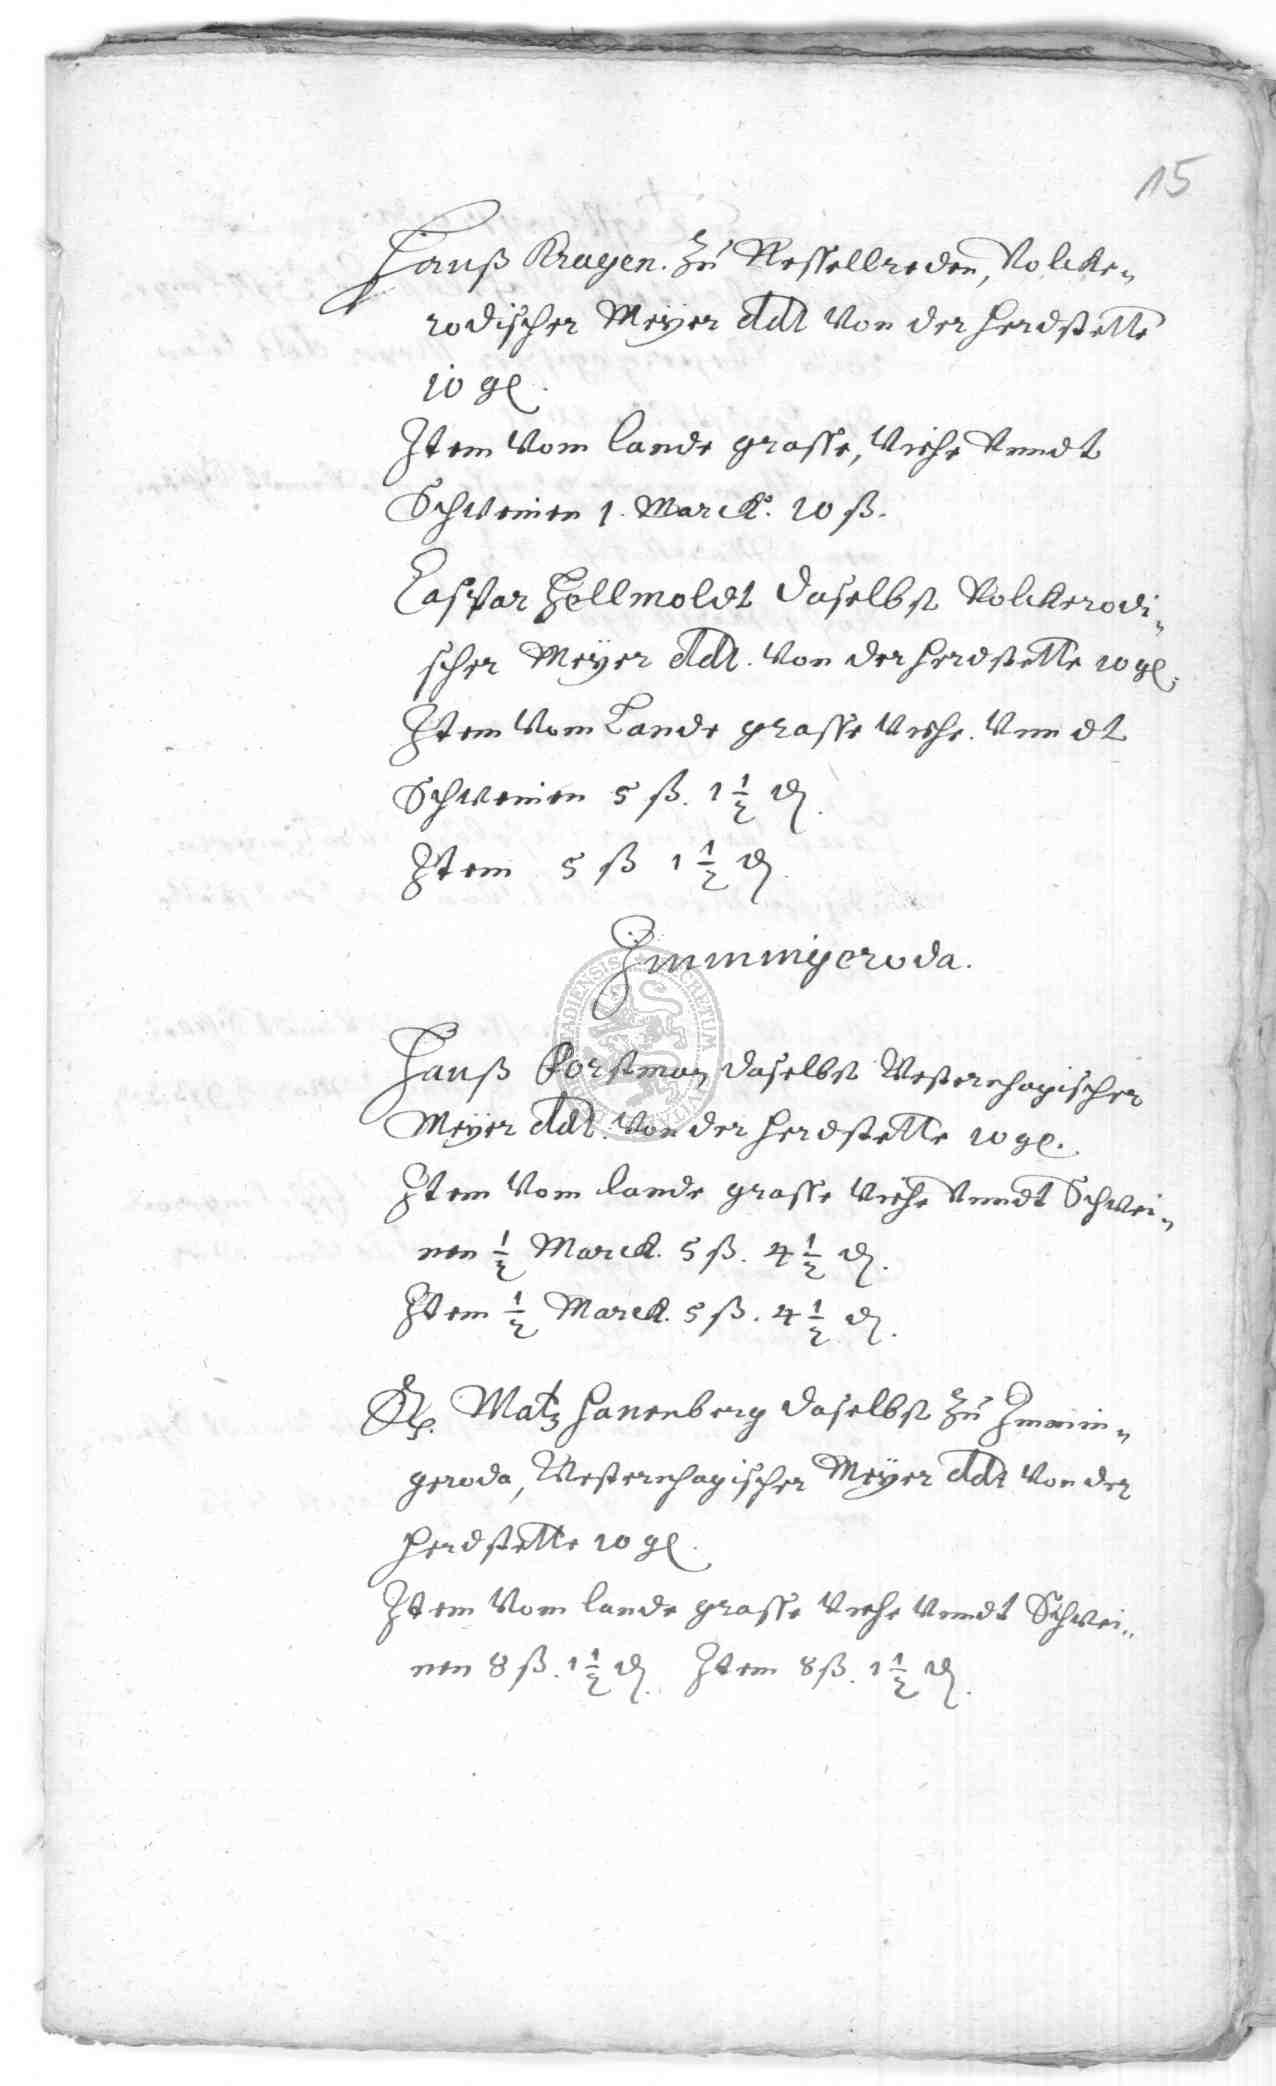 15
Hanß Kragen. zu Nesselreden, Volcke„
rodischer Meÿer ddt Von der herdstette
10 gl.
Item Vom lande grasse, Viehe Vnndt
Schweinen 1. Marck. 10 ß.
Caspar Hellmoldt daselbst Volckerodi„
scher Meÿer ddt. Von der herdstette 10 gl.
Item Vom Lande grasse Viehe. Vnndt
Schweinen 5 ß. 1 1/2 ₰.
Item 5 ß 1 1/2 ₰.
Immingeroda.
Hanß Porstman daselbst Westernhagischer
Meÿer ddt. Von der herdstette 10 gl.
Item Vom lande grasse Viehe Vnndt Schwei„
nen 1/2 Marck. 5 ß. 4 1/2 ₰.
Item 1/2 Marck. 5 ß. 4 1/2 ₰.
Matz Hanenberg daselbst zu Immin„
geroda, Westernhagischer Meÿer ddt Von der
herdstette 10 gl.
Item Vom lande grasse Viehe Vnndt Schwei„
nen 8 ß. 1 1/2 ₰. Item 8 ß. 1 1/2 ₰.